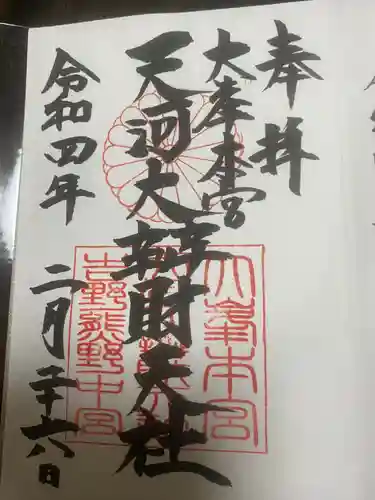 奉拝
大峯本宮
天河大辨財天社
令和四年
二月二十六日
大峯本宮
吉野熊野中宮